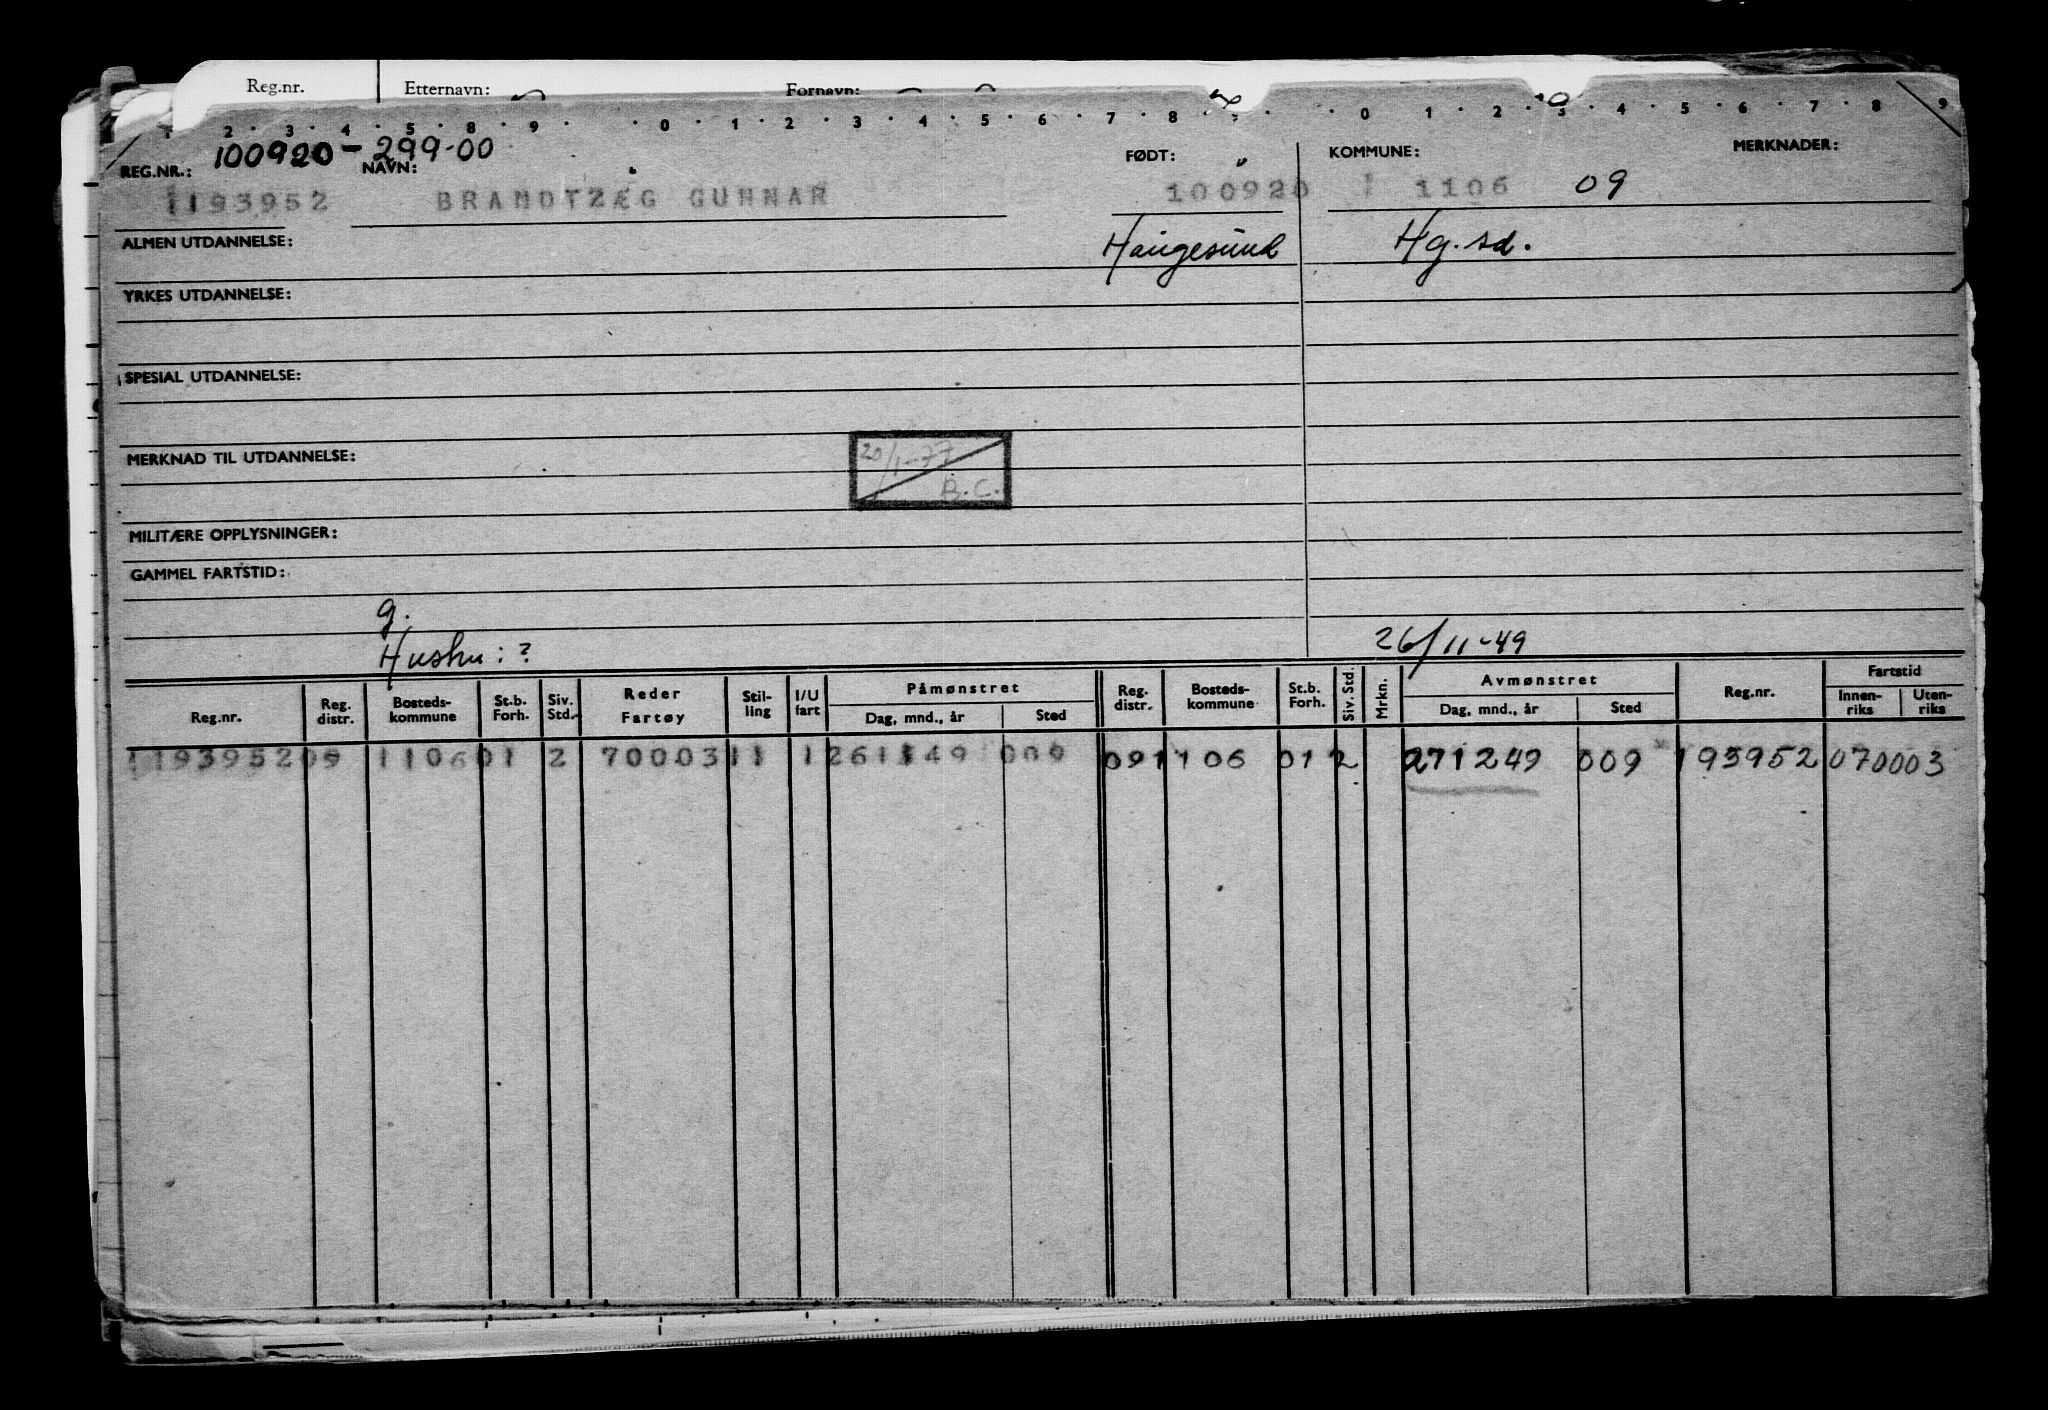 Reg.nr. Etternavn: Fornavn:
1 2 3 4 5 8 9 0 1 2 3 4 5 6 7 8 0 1 2 3 4 5 6 7 8 9
100920-299-00
REG.NR.: NAVN: FØDT: KOMMUNE: MERKNADER:
1193952 BRANDTZÆG GUNNAR 100920 1106 09
ALMEN UTDANNELSE: Haugesund Hg.sd.
YRKES UTDANNELSE:
SPESIAL UTDANNELSE:
MERKNAD TIL UTDANNELSE: 20/1-77
B.C.
MILITÆRE OPPLYSNINGER:
GAMMEL FARTSTID:
g.
Hushu: ? 26/11-49
Reg.nr. Reg. distr. Bosteds-kommune St.b. Forh. Siv. Std. Reder Fartøy Stil-ling I/U fart Påmønstret Dag, mnd., år Sted Reg. distr. Bosteds-kommune St.b. Forh. Siv. Std. Mrkn. Avmønstret Dag, mnd., år Sted Reg.nr. Fartstid Innen-riks Uten-riks
1193952 09 1106 01 2 70003 11 1 261149 009 09 1106 01 2 271249 009 193952 070003